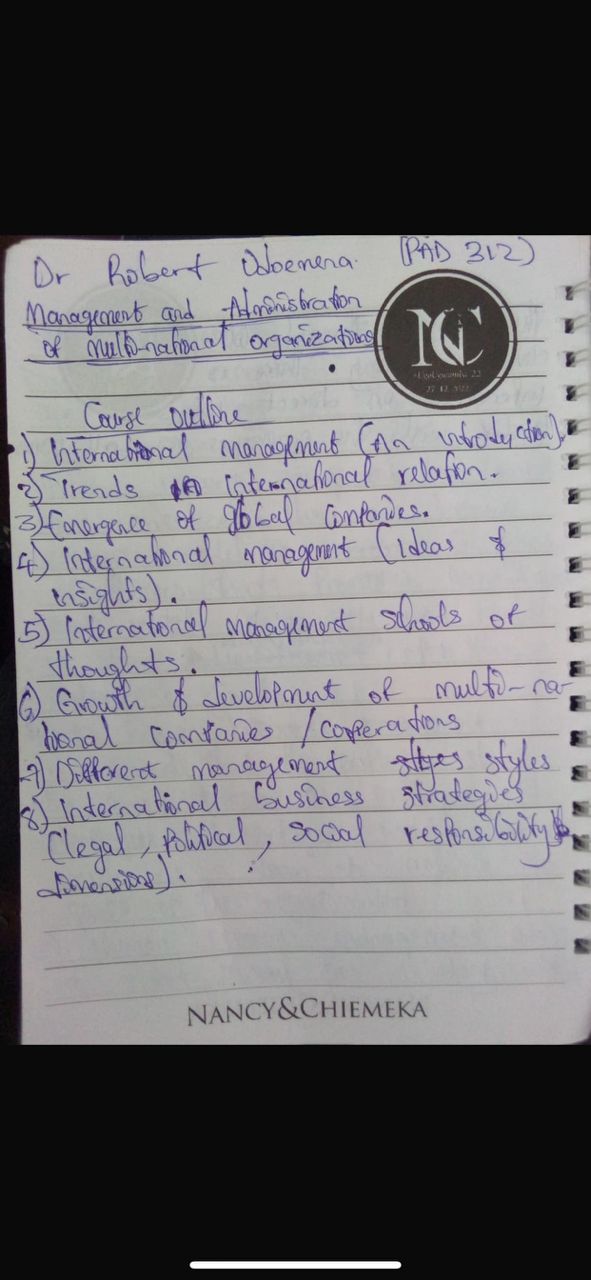 Dr Robert Odoemena. (PAD 312)
Management and Administration
of multi-national organizations
NC
27.12.2022
Course outline
1) International management (An introduction).
2) Trends in international relation.
3) Emergence of global companies.
4) International management (ideas &
insights).
5) International management schools of
thoughts.
6) Growth & development of multi-na-
tional companies / coperations
7) Different management styles
8) International business strategies
(legal, political, social responsibility
dimensions).
NANCY&CHIEMEKA